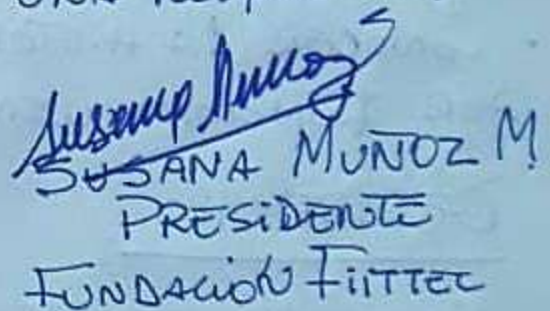 Susana Munoz
SUSANA MUÑOZ M.
PRESIDENTE
FUNDACIÓN FIITTEC